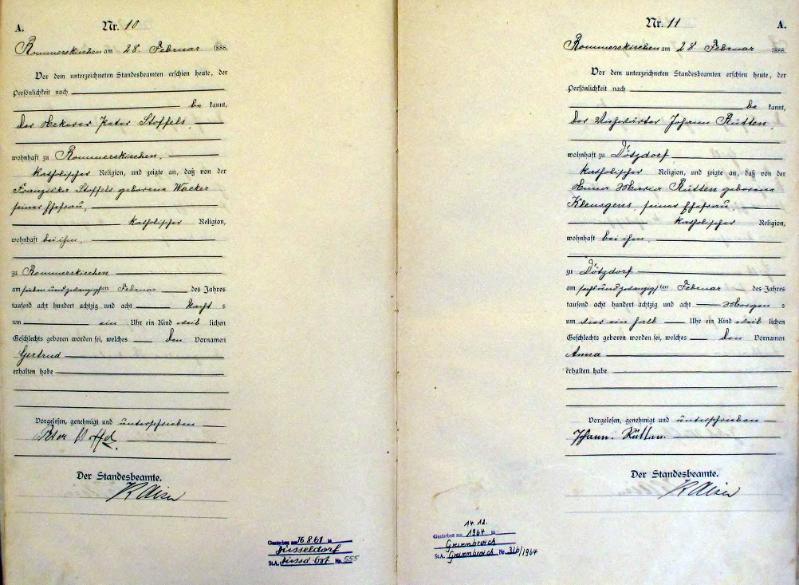 A. Nr. 10
Rommerskirchen am 28. Februar 1888.
Vor dem unterzeichneten Standesbeamten erschien heute, der
Persönlichkeit nach
be kannt,
der Ackerer Peter Stoffels
wohnhaft zu Rommerskirchen,
katholischer Religion, und zeigte an, daß von der
Franziska Stoffels geborene Wacker
seiner Ehefrau,
katholischer Religion,
wohnhaft bei ihm
zu Rommerskirchen
am sieben und zwanzigsten Februar des Jahres
tausend acht hundert achtzig und acht
um ein Uhr ein Kind weib lichen
Geschlechts geboren worden sei, welches den Vornamen
Gertrud
erhalten habe
Vorgelesen, genehmigt und unterschrieben
Der Standesbeamte.
Gestorben 16.8.61 in
Düsseldorf
St.A. Nr. 555
Nr. 11 A.
Rommerskirchen am 28 Februar 1888
Vor dem unterzeichneten Standesbeamten erschien heute, der
Persönlichkeit nach
be kannt,
der Johann Rütten
wohnhaft zu
katholischer Religion, und zeigte an, daß von der
Anna Maria Rütten geborene
seiner Ehefrau
katholischer Religion,
wohnhaft bei ihm
zu
am Februar des Jahres
tausend acht hundert achtzig und acht Morgen s
um ein halb Uhr ein Kind weib lichen
Geschlechts geboren worden sei, welches den Vornamen
Anna
erhalten habe
Vorgelesen, genehmigt und unterschrieben
Johann Rütten
Der Standesbeamte.
14.12.
Gestorben am 1964 in
Grevenbroich
St.A. Grevenbroich Nr. /1964